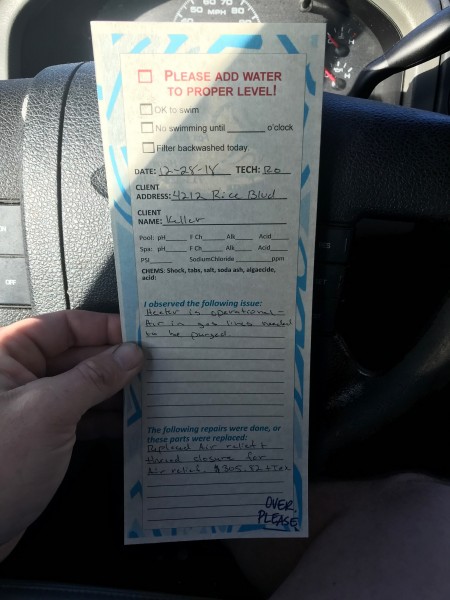 60 70 80
50 MPH 90
☐ PLEASE ADD WATER
TO PROPER LEVEL!
☐ OK to swim
☐ No swimming until ______ o'clock
☐ Filter backwashed today
DATE: 12-28-18 TECH: Ro
CLIENT
ADDRESS: 4212 Rice Blvd
CLIENT
NAME: Keller
Pool: pH____ F Ch____ Alk____ Acid____
Spa: pH____ F Ch____ Alk____ Acid____
PSI____ SodiumChloride ____ ppm
CHEMS: Shock, tabs, salt, soda ash, algaecide,
acid:
I observed the following issue:
Heater is operational -
Air in gas lines needed
to be purged.
The following repairs were done, or
these parts were replaced:
Replaced Air relief &
closure for
Air relief. $305.82 + Tax
OVER,
PLEASE
OFF